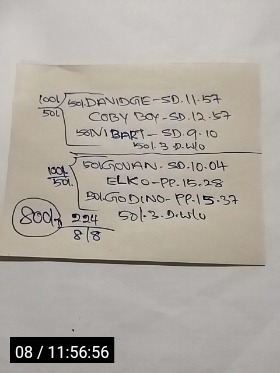 100/ 50/. DANIDGE-SD.11.57
50/. COBY BOY-SD.12.57
50/. NIBART-SD.9.10
50/.3.D.W/U
100/. 50/. GOVAN-SD.10.04
50/. ELKO-PP.15.28
50/. GODINO-PP.15.37
800/- 224 50/.3.D.W/U
8/8
08 / 11:56:56